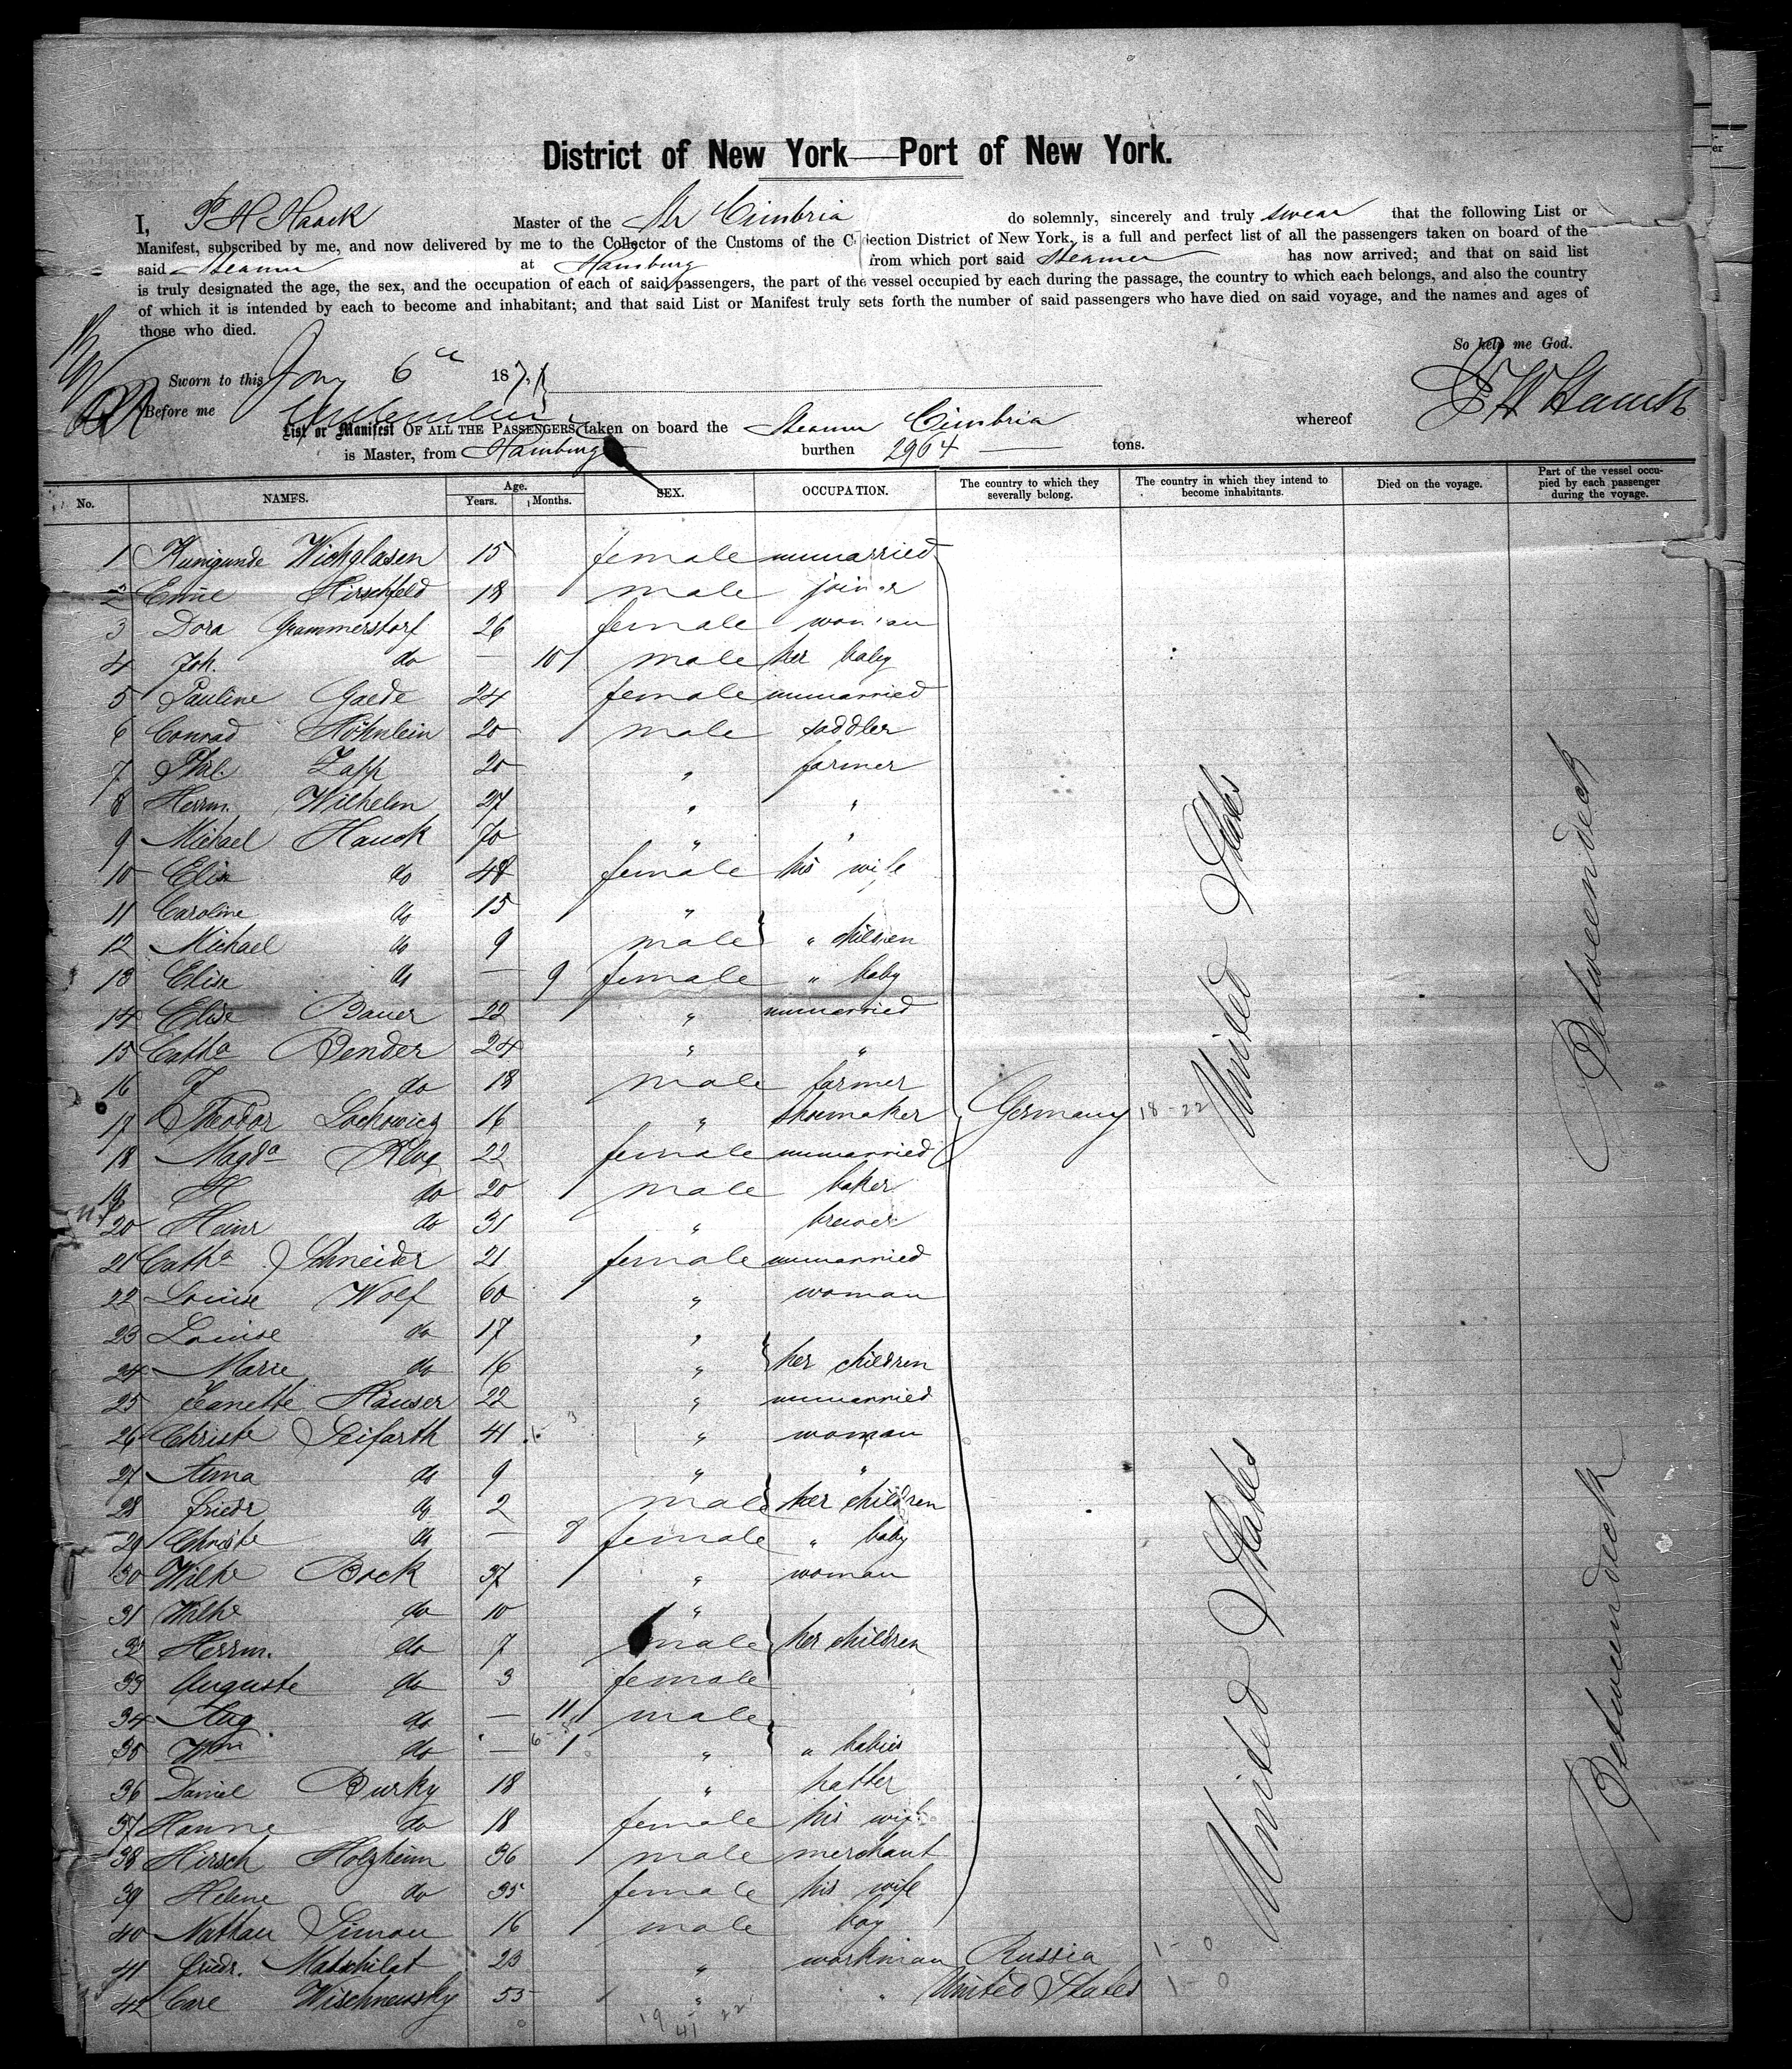 District of New York — Port of New York.
I, P H Haack Master of the Str Cimbria do solemnly, sincerely and truly swear that the following List or
Manifest, subscribed by me, and now delivered by me to the Collector of the Customs of the Collection District of New York, is a full and perfect list of all the passengers taken on board of the
said Steamer at Hamburg from which port said Steamer has now arrived; and that on said list
is truly designated the age, the sex, and the occupation of each of said passengers, the part of the vessel occupied by each during the passage, the country to which each belongs, and also the country
of which it is intended by each to become and inhabitant; and that said List or Manifest truly sets forth the number of said passengers who have died on said voyage, and the names and ages of
those who died.
So help me God.
Sworn to this Jany 6 187
Before me
List or Manifest OF ALL THE PASSENGERS taken on board the Steamer Cimbria whereof
is Master, from Hamburg burthen 2964 tons.
No. NAMES. Age. Years. Months. SEX. OCCUPATION. The country to which they severally belong. The country in which they intend to become inhabitants. Died on the voyage. Part of the vessel occupied by each passenger during the voyage.
1 Kunigunde Wichglasen 15 female unmarried
2 Emil Hirschfeld 18 male joiner
3 Dora Grammerstorf 26 female woman
4 Joh. do — 10 male her baby
5 Pauline Gaede 24 female unmarried
6 Conrad Höhnlein 20 male saddler
7 Phil. Zapp 20 " farmer
8 Herrm. Wilhelm 27 " "
9 Michael Hauck 70 " "
10 Elis do 48 female his wife
11 Caroline do 15 "
12 Michael do 9 male } " children
13 Elise do — 9 female " baby
14 Elise Bauer 22 " unmarried
15 Catha Bender 24 " "
16 J do 18 male farmer
17 Theodor Lochowicz 16 " shoemaker Germany 18-22 United States Betweendeck
18 Magda Klug 22 female unmarried
19 H do 20 male baker
20 Heinr do 31 " brewer
21 Catha Schneider 21 female unmarried
22 Louise Wolf 60 " woman
23 Louise do 17 "
24 Marie do 16 " } her children
25 Jeanette Häuser 22 " unmarried
26 Christe Seifarth 41 " woman
27 Anna do 9 " "
28 Friedr do 2 male } her children
29 Christe do — 8 female " baby
30 Wilhe Bock 37 " woman
31 Wilhe do 10 "
32 Herrm. do 7 male } her children
33 Auguste do 3 female
34 Aug. do — 11 male
35 Wm do — 1 " } " babies
36 Daniel Burky 18 " hatter
37 Hanne do 18 female his wife
38 Hirsch Holzheim 36 male merchant United States Betweendeck
39 Helene do 35 female his wife
40 Nathan Simon 16 male boy
41 Friedr. Matschilat 23 " workman Russia 1-0
42 Care Wischnewsky 55 " " United States 1-0
19 41 22